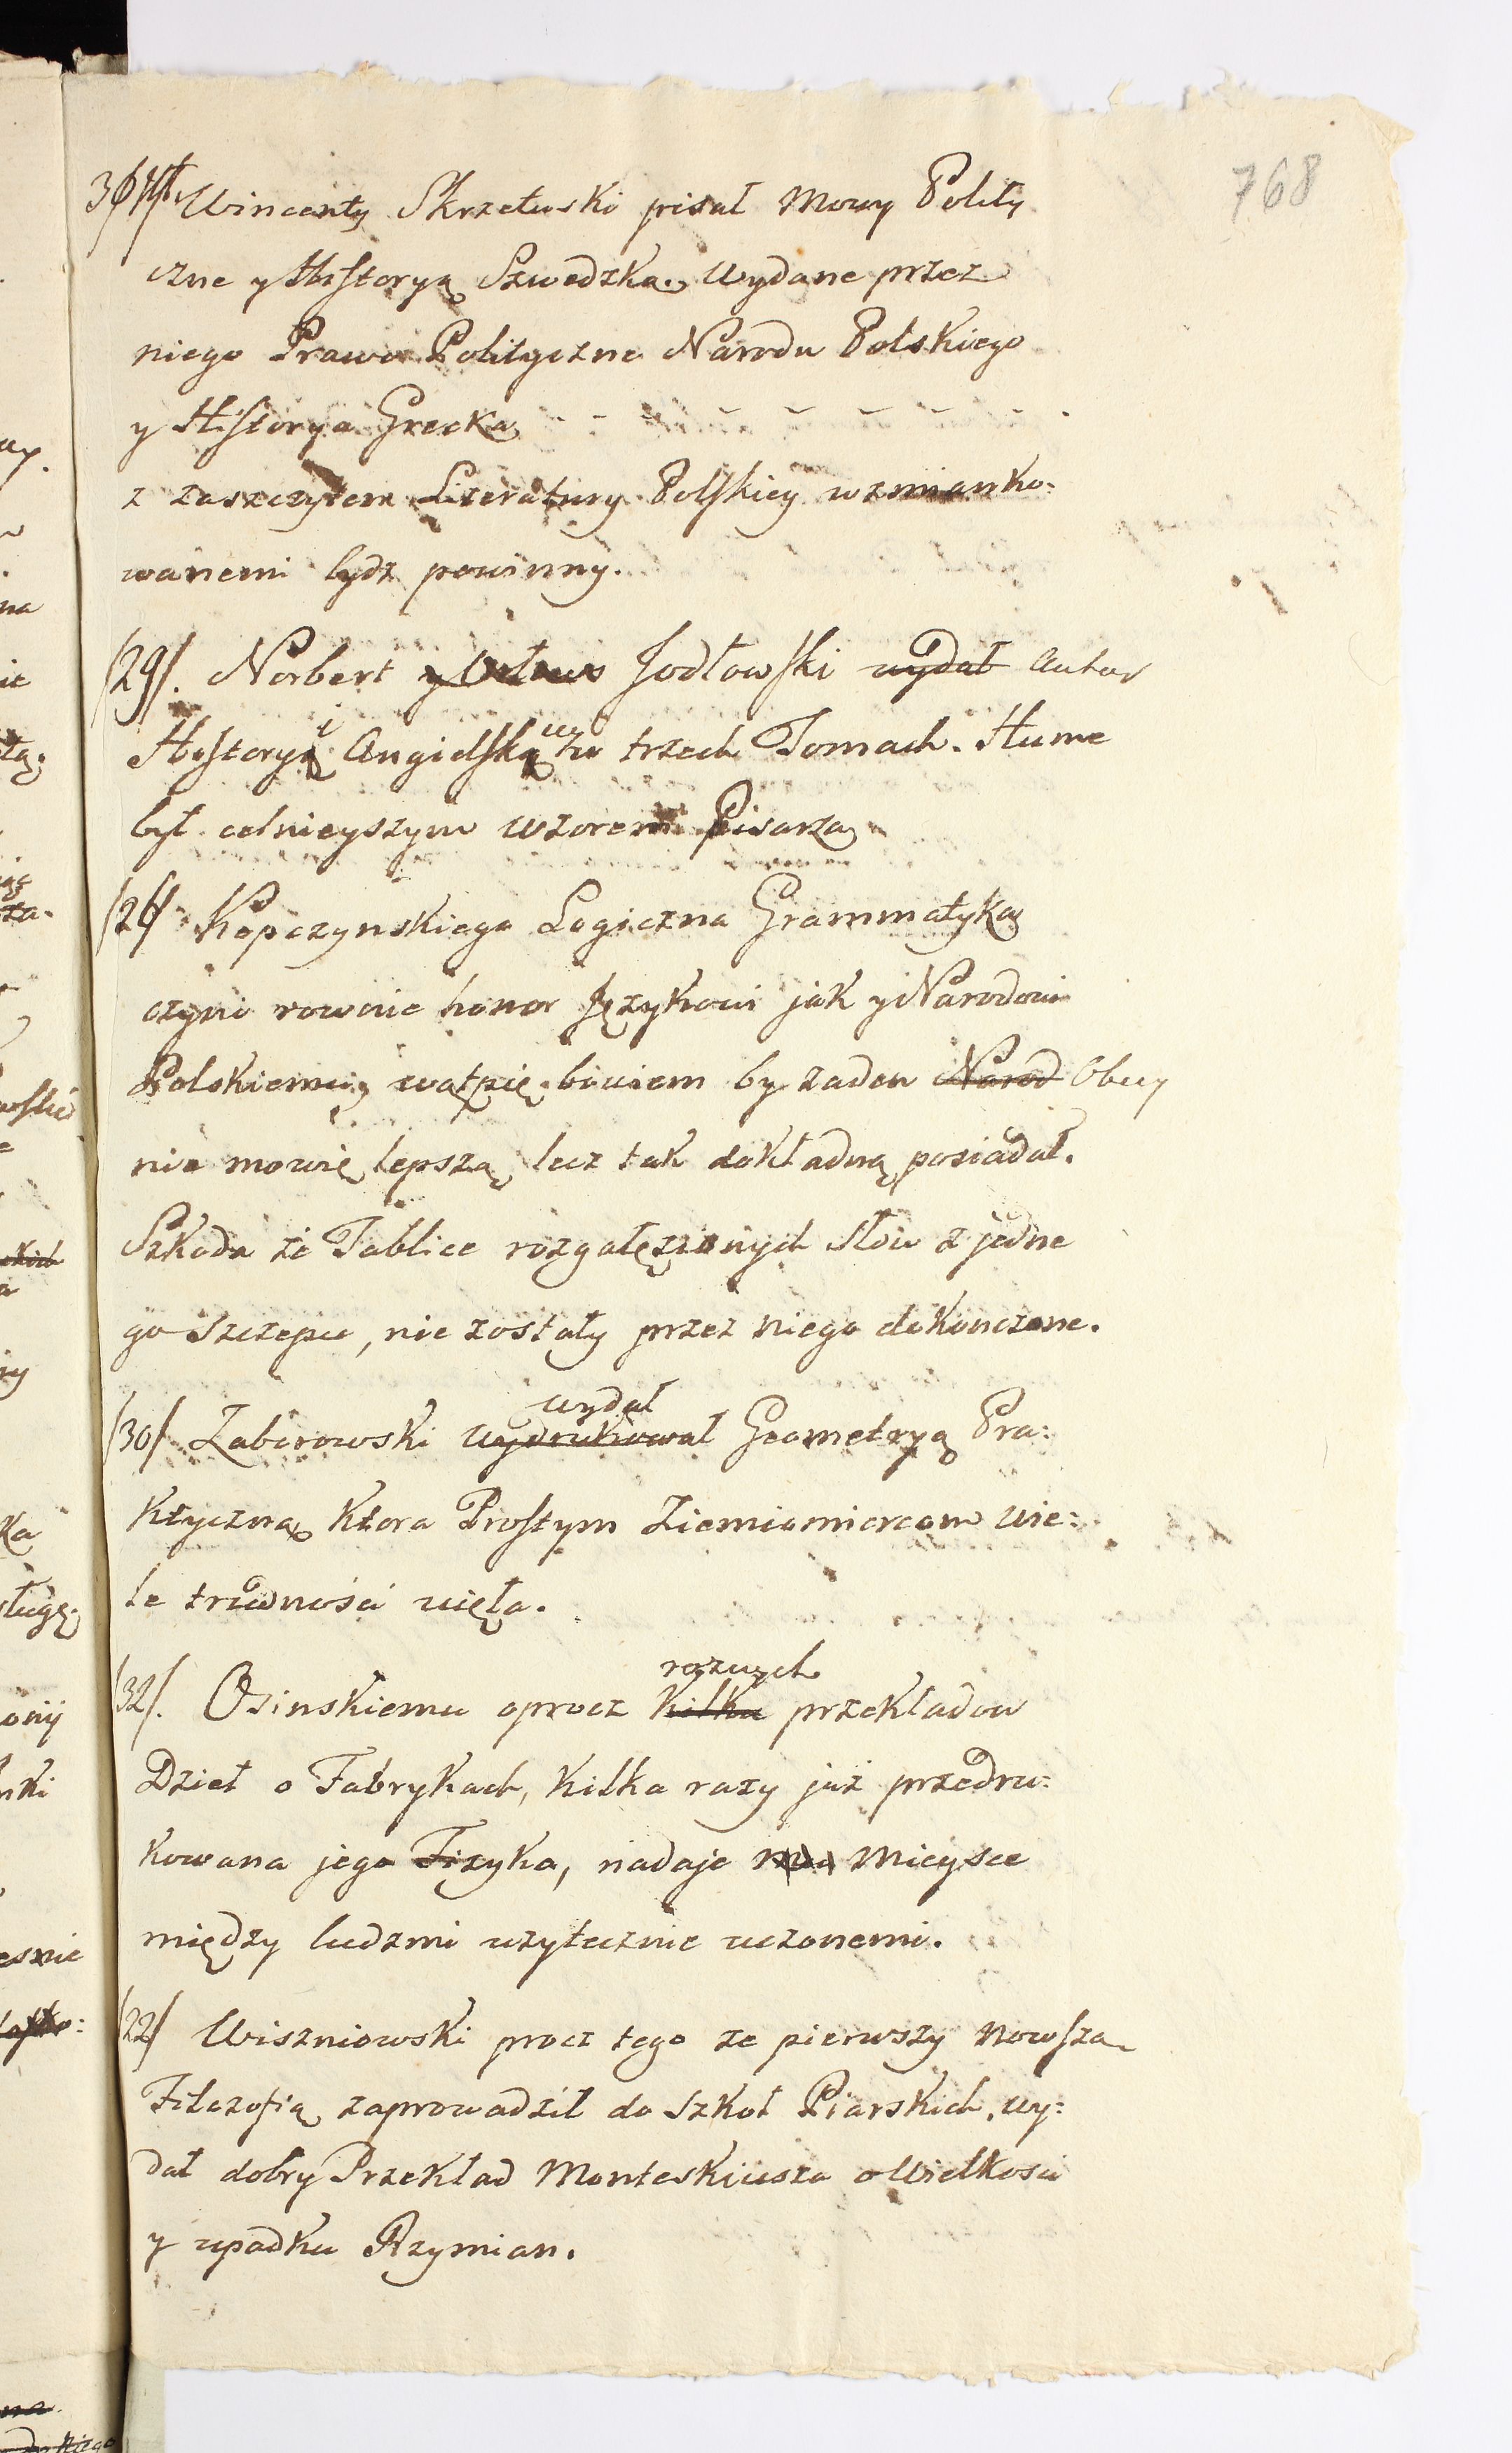 768
Wincenty Skrzetuski pisał Mowy Polity
czne y Historyą Szwedzką. Wydane przez
niego Prawo Polityczne Narodu Polskiego
y Historya Grecka
z zaszczytem Literatury Polskiey wzmianko:
wanemi bydz powinny.
/29/. Norbert Jodłowski wydał Autor
Historyi Angielskiey w trzech Tomach. Hume
był celnieyszym wzorem Pisarza
/26/ Kopczynskiego Logiczna Grammatyka
czyni rownie honor Językowi jak y Narodowi
Polskiemu, wątpię bowiem by zaden Narod Obcy
nie mowię lepszą, lecz tak dokładną posiadał.
Szkoda że Tablice rozgałęzionych słow z jedne
go Szczepu, nie zostały przez niego dokonczone.
wydał
/30/ Zaborowski wydrukował Geometryą Pra:
ktyczną, ktora Prostym Ziemiomiercom wie:
le trudnośći uięła.
roznych
/32/. Osinskiemu oprocz kilku przekładow
Dzieł o Fabrykach, kilka razy już przedru:
kowana jego Fizyka, nadaje mu Mieysce
między ludzmi uzytecznie uczonemi.
/22/ Wiszniowski procz tego ze pierwszy nowszą
Filozofią zaprowadził do Szkoł Piarskich, wy:
dał dobry Przekład Monteskiusza o Wielkosci
y upadku Rzymian.